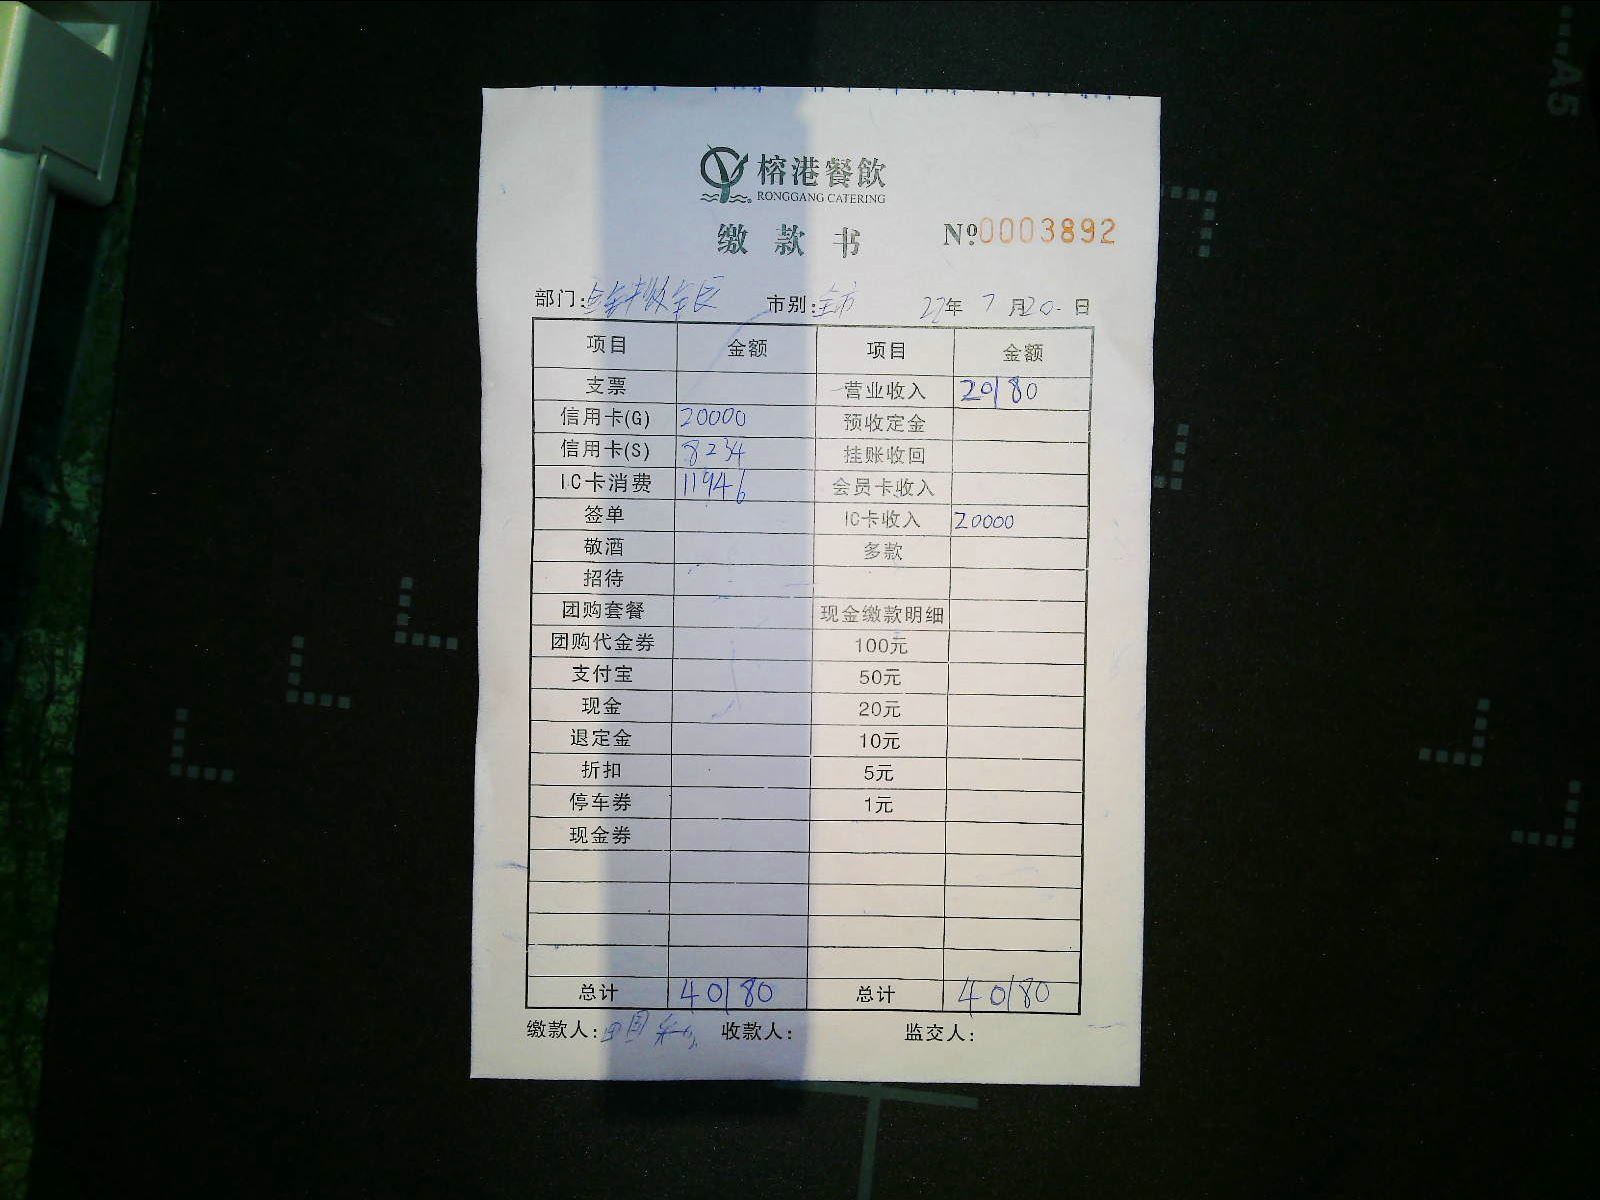 榕港餐飲
RONGGANG CATERING
缴款书 №0003892
部门: 市别:全市 22年7月20日
项目 金额 项目 金额
支票 营业收入 20180
信用卡(G) 20000 预收定金
信用卡(S) 8234 挂账收回
IC卡消费 11946 会员卡收入
签单 IC卡收入 20000
敬酒 多款
招待
团购套餐 现金缴款明细
团购代金券 100元
支付宝 50元
现金 20元
退定金 10元
折扣 5元
停车券 1元
现金券
总计 40180 总计 40180
缴款人: 收款人: 监交人:
A5